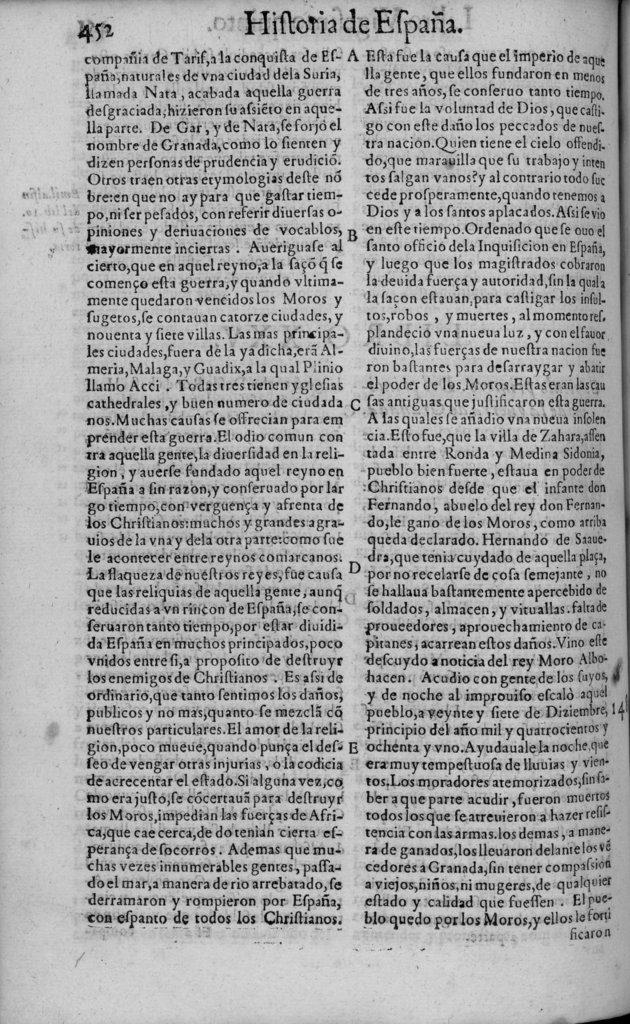 452
Historia de España.
compañia de Tarif, a la conquista de Es-
paña, naturales de vna ciudad dela Suria,
llamada Nata, acabada aquella guerra
desgraciada, hizieron su assiẽto en aque-
lla parte. De Gar, y de Nata, se forjo el
nombre de Granada, como lo sienten y
dizen personas de prudencia y erudiciõ.
Otros traen otras etymologias deste nõ
bre: en que no ay para que gastar tiem-
po, ni ser pesados, con referir diuersas o-
piniones y deriuaciones de vocablos,
mayormente inciertas. Aueriguase al
cierto, que en aquel reyno, a la saçõ q̃ se
começo esta guerra, y quando vltima-
mente quedaron vencidos los Moros y
sugetos, se contauan catorze ciudades, y
nouenta y siete villas. Las mas principa-
les ciudades, fuera de la ya dicha, erã Al-
meria, Malaga, y Guadix, a la qual Plinio
llamo Acci. Todas tres tienen yglesias
cathedrales, y buen numero de ciudada
nos. Muchas causas se offrecian para em
prender esta guerra. El odio comun con
tra aquella gente, la diuersidad en la reli-
gion, y auerse fundado aquel reyno en
España a sin razon, y conseruado por lar
go tiempo, con verguença y afrenta de
los Christianos: muchos y grandes agra-
uios de la vna y dela otra parte: como sue
le acontecer entre reynos comarcanos.
La flaqueza de nuestros reyes, fue causa
que las reliquias de aquella gente, aunq̃
reducidas a vn rincon de España, se con-
seruaron tanto tiempo, por estar diuidi-
da España en muchos principados, poco
vnidos entre si, a proposito de destruyr
los enemigos de Christianos. Es assi de
ordinario, que tanto sentimos los daños,
publicos y no mas, quanto se mezclã cõ
nuestros particulares. El amor de la reli-
gion, poco mueue, quando punça el des-
seo de vengar otras injurias, o la codicia
de acrecentar el estado. Si alguna vez, co
mo era justo, se cõcertauã para destruyr
los Moros, impedian las fuerças de Afri-
ca, que cae cerca, de do tenian cierta es-
perança de socorros. Ademas que mu-
chas vezes innumerables gentes, passa-
do el mar, a manera de rio arrebatado, se
derramaron y rompieron por España,
con espanto de todos los Christianos.
A
B
C
D
E
Esta fue la causa que el imperio de aque
lla gente, que ellos fundaron en menos
de tres años, se conseruo tanto tiempo.
Assi fue la voluntad de Dios, que casti-
go con este daño los peccados de nues-
tra nacion. Quien tiene el cielo offendi-
do, que marauilla que su trabajo y inten
tos salgan vanos? y al contrario todo suc
cede prosperamente, quando tenemos a
Dios y a los santos aplacados. Assi se vio
en este tiempo. Ordenado que se ouo el
santo officio dela Inquisicion en España,
y luego que los magistrados cobraron
la deuida fuerça y autoridad, sin la qual a
la saçon estauan, para castigar los insul-
tos, robos, y muertes, al momento res.
plandeció vna nueua luz, y con el fauor
diuino, las fuerças de nuestra nacion fue
ron bastantes para desarraygar y abatir
el poder de los Moros. Estas eran las cau
sas antiguas que justificaron esta guerra.
A las quales se añadio vna nueua insolen
cia. Esto fue, que la villa de Zahara, assen
tada entre Ronda y Medina Sidonia,
pueblo bien fuerte, estaua en poder de
Christianos desde que el infante don
Fernando, abuelo del rey don Fernan-
do, le gano de los Moros, como arriba
queda declarado. Hernando de Saaue-
dra, que tenia cuydado de aquella plaça,
por no recelarse de cosa semejante, no
se hallaua bastantemente apercebido de
soldados, almacen, y vituallas. falta de
proueedores, aprouechamiento de ca-
pitanes, acarrean estos daños. Vino este
descuydo a noticia del rey Moro Albo-
hacen. Acudio con gente de los suyos,
y de noche al improuiso escalò aquel
pueblo, a veynte y siete de Diziembre,
principio del año mil y quatrocientos y
ochenta y vno. Ayudauale la noche, que
era muy tempestuosa de lluuias y vien-
tos. Los moradores atemorizados, sin sa-
ber a que parte acudir, fueron muertos
todos los que se atreuieron a hazer resis-
tencia con las armas. los demas, a mane-
ra de ganados, los lleuaron delante los vẽ
cedores a Granada, sin tener compassion
a viejos, niños, ni mugeres, de qualquier
estado y calidad que fuessen. El pue-
blo quedo por los Moros, y ellos le forti
ficaron